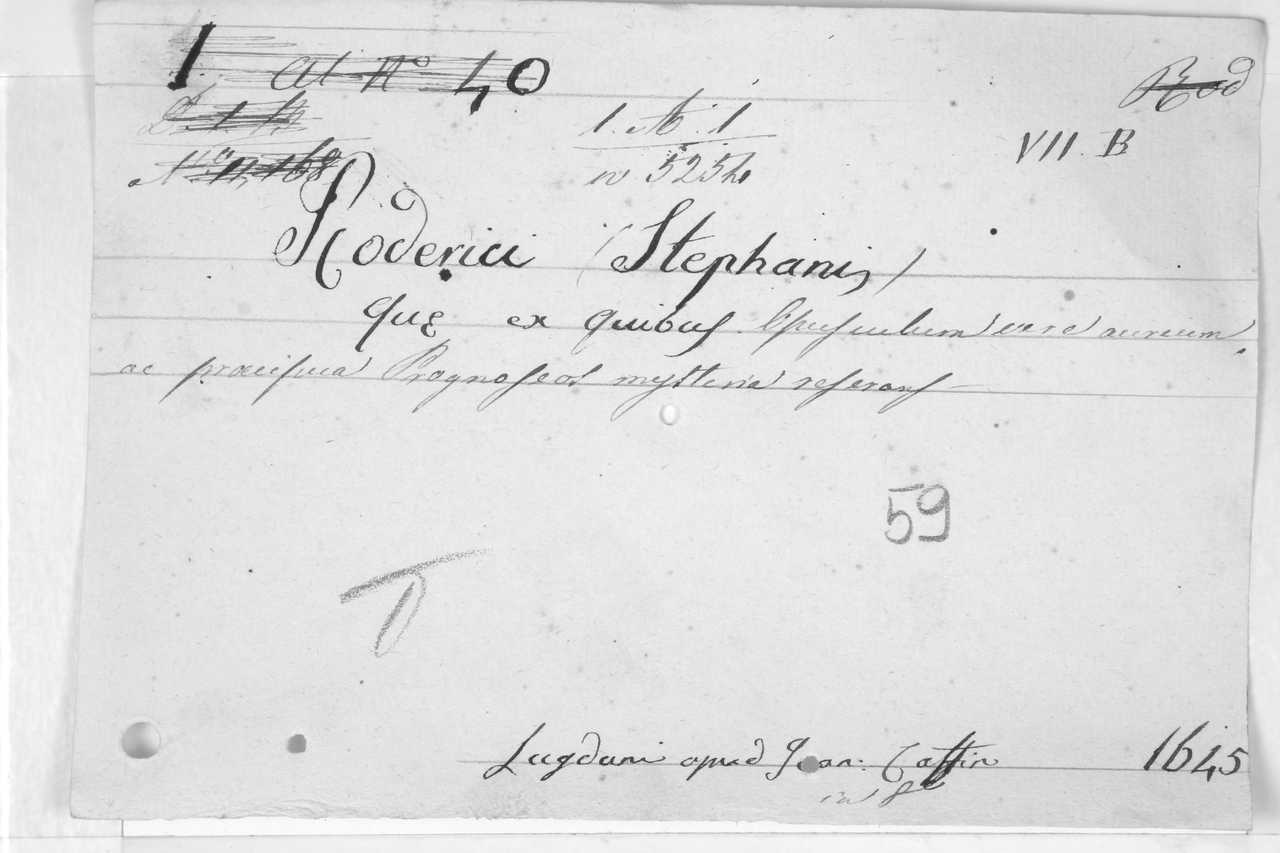 1 al N° 40
Rod
1. A. 1
VII. B
N° 11,168
n° 5254
Roderici (Stephani)
Quę ex quibus. Opusculum vere aureum,
ac præcipua Prognoseos mysteria reserans
59
T
Lugduni apud Joan: Caffin 1645
in 8°